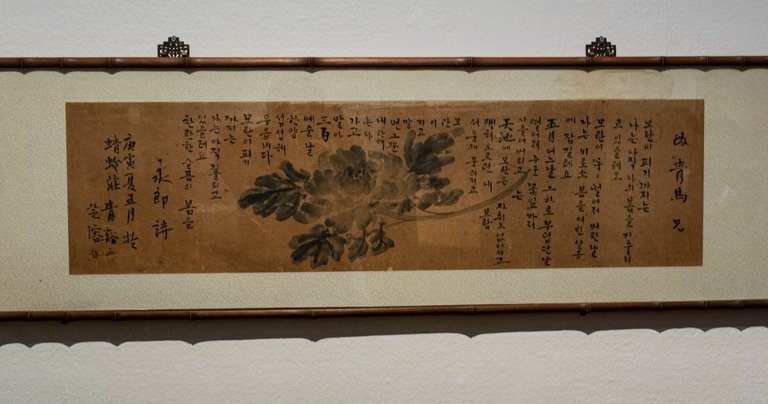 青馬兄
모란이 피기 까지는
나는 아직 나의 봄을 기둘리
고 있을테요
모란이 뚝뚝 떨어져 버린 날
나는 비로소 봄을 여흰 설음
에 잠길테요
五月 어느날 그 하로 무덥던 날
떨어져 누운 꽃잎마저
시들어 버리고는
天地에 모란은 자취도 없어지고
뻗쳐 오르던 내 보람
서운케 무너졌느니
모
란
이
지고
말
면 그뿐
내 한해
는 다
가고
말아
三百
예순 날
한양
섭섭해
우옵네다
모란이 피기
까지는
나는 아직 기둘리고
있을테요
찬란한 슬픔의 봄을
永郎 詩
庚寅夏五月於
蜻蛉莊 青谿
芝溶